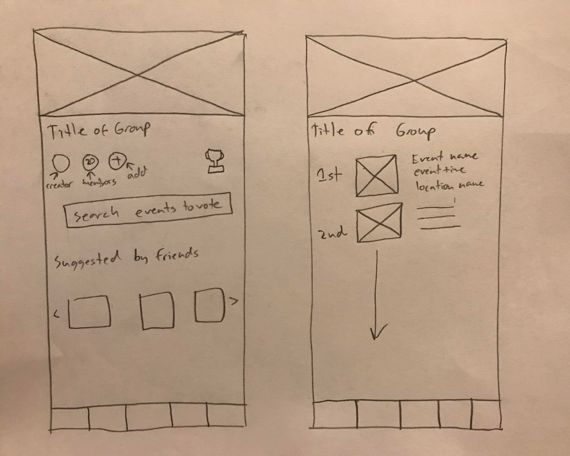 Title of Group
20
+
creator
members
add
search events to vote
Suggested by friends
<
>
Title of Group
1st
Event name
event time
location name
2nd